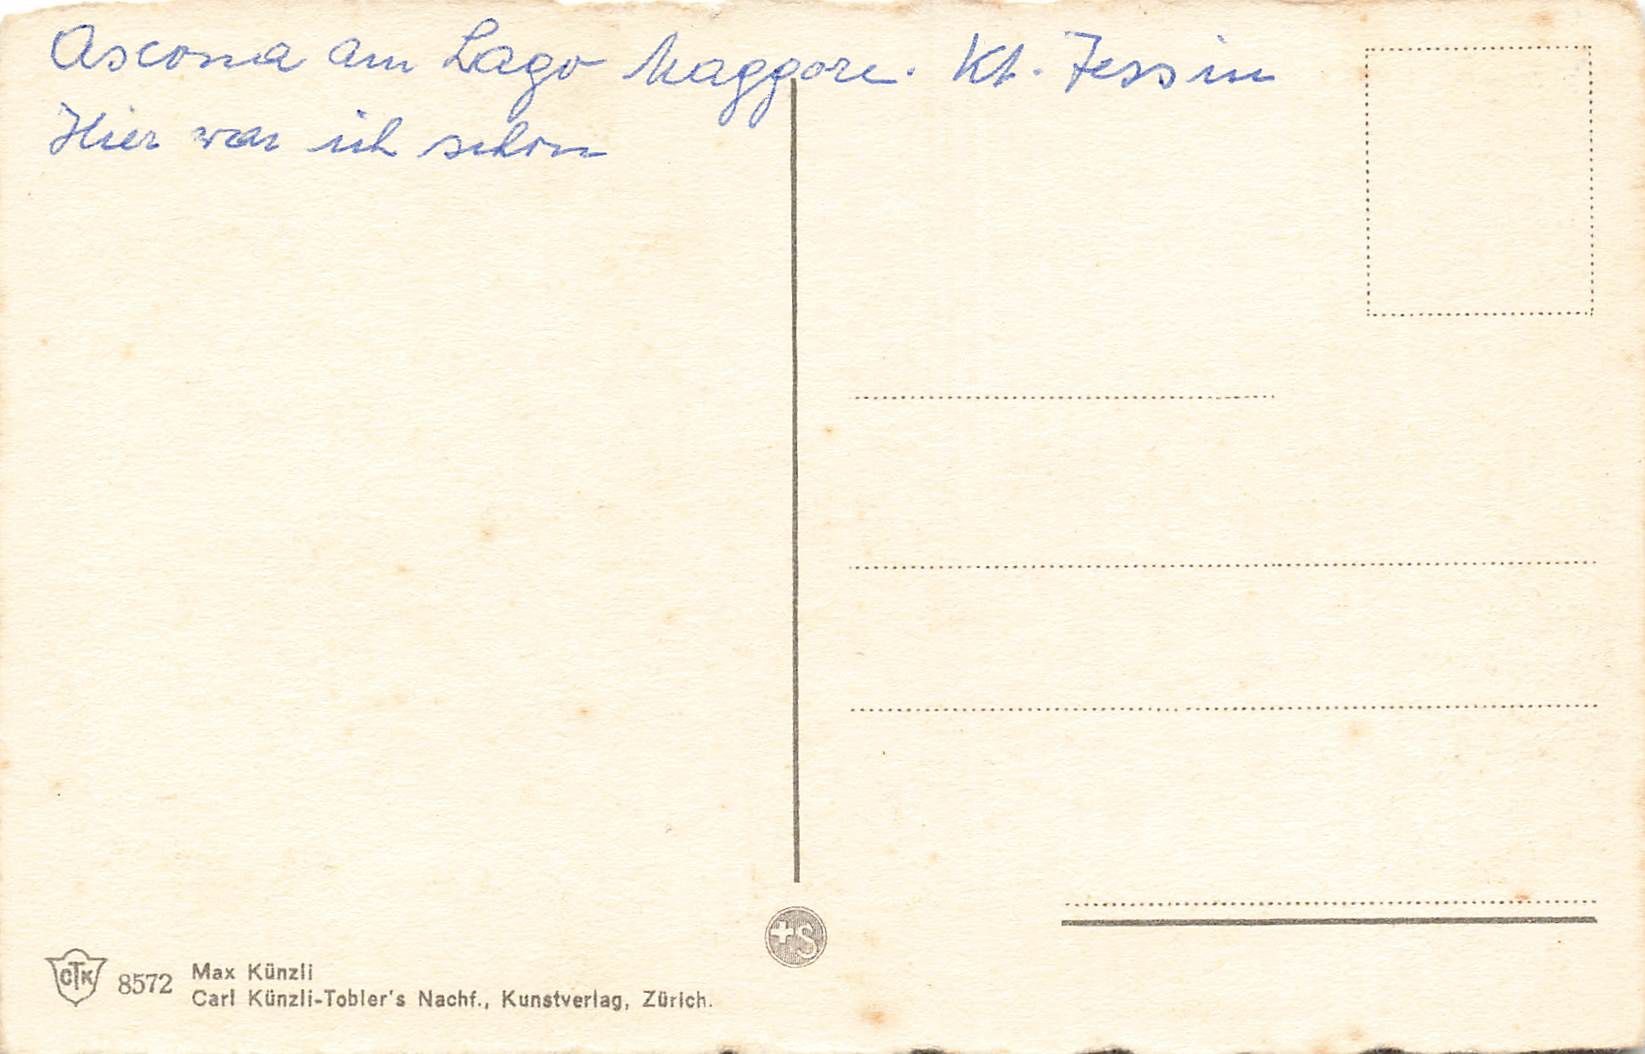 Ascona am Lago Maggore. Kt. Tessin
Hier war ich schon
CTK 8572 Max Künzli
Carl Künzli-Tobler's Nachf., Kunstverlag, Zürich.
+S